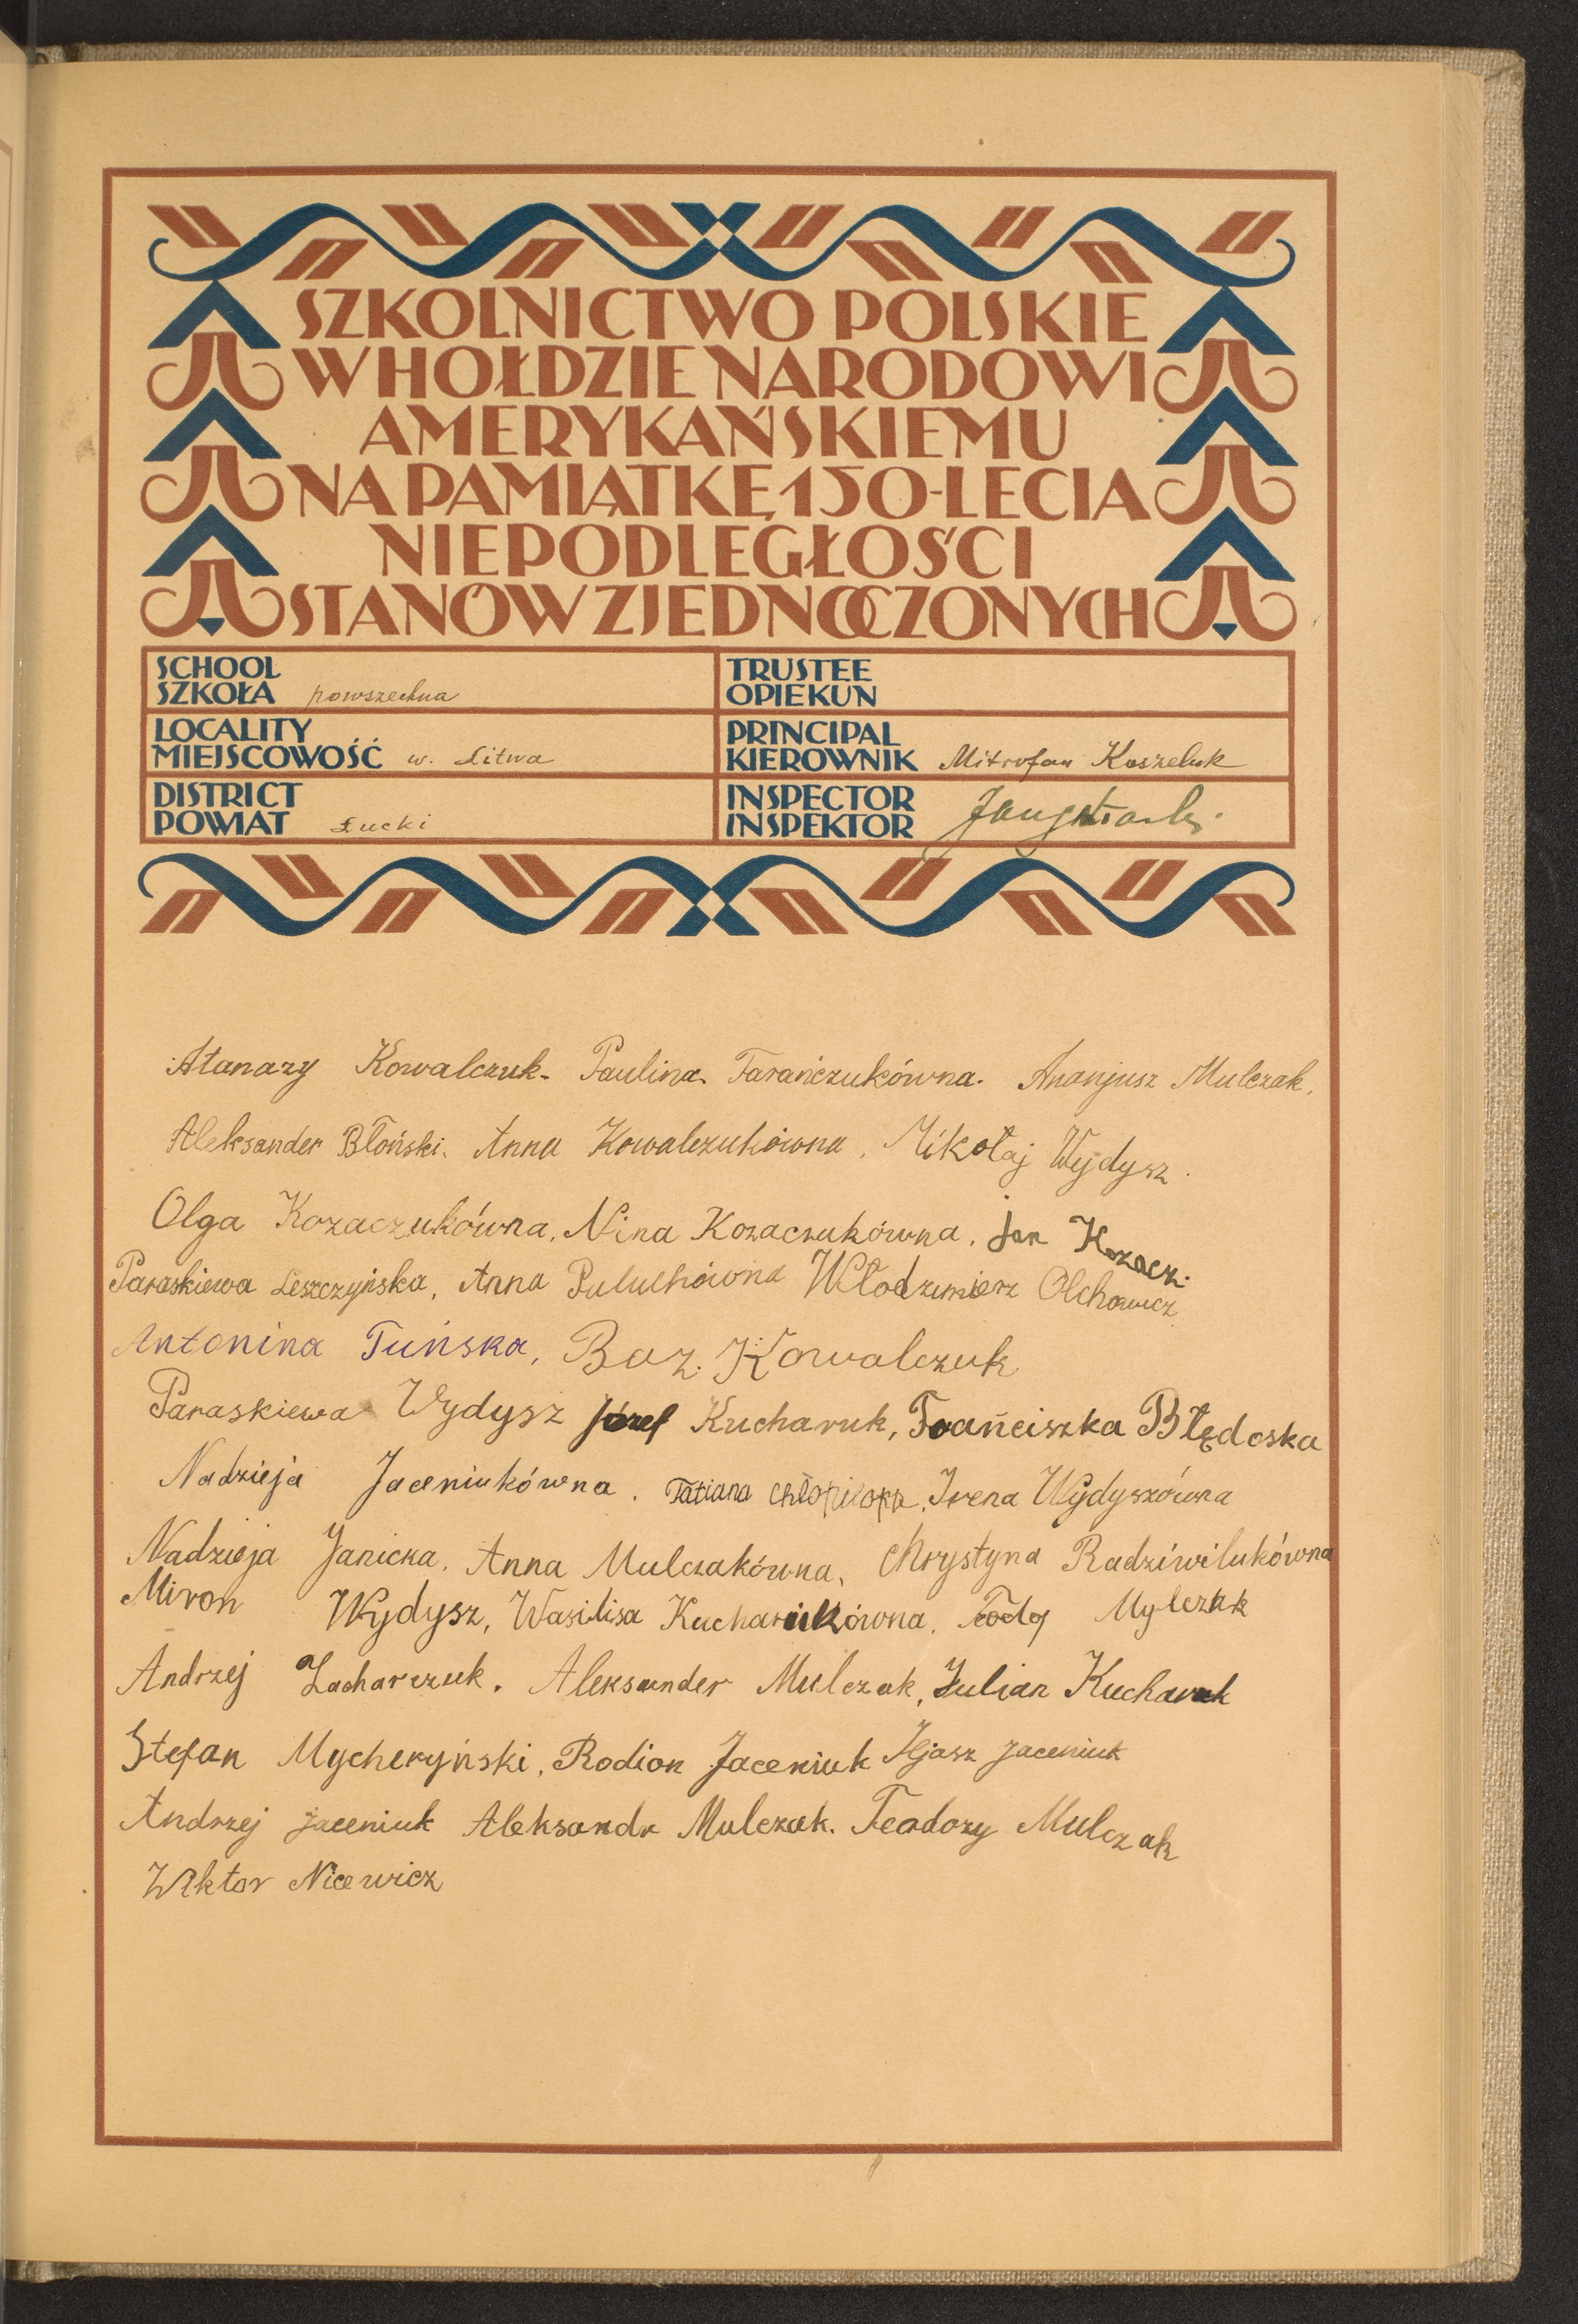 SZKOLNICTWO POLSKIE
W HOŁDZIE NARODOWI
AMERYKAŃSKIEMU
NA PAMIĄTKĘ 150-LECIA
NIEPODLEGŁOŚCI
STANÓW ZJEDNOCZONYCH
SCHOOL
SZKOŁA powszechna
TRUSTEE
OPIEKUN
LOCALITY
MIEJSCOWOŚĆ w. Litwa
PRINCIPAL
KIEROWNIK Mitrofan Koszeluk
DISTRICT
POWIAT Łucki
INSPECTOR
INSPEKTOR
Atanazy Kowalczuk. Paulina Tarańczukówna. Ananjusz Mulczak,
Aleksander Błoński. Anna Kowalczukówna, Mikołaj Wydysz.
Olga Kozaczukówna, Nina Kozaczukówna, Jan Kozacz.
Paraskiewa Leszczyńska, Anna Puluchówna Włodzimierz Olchowicz
Antonina Tuńska, Baz. Kowalczuk
Paraskiewa Wydysz Józef Kucharuk, Frańciszka Błędoska
Nadzieja Jaceniukówna. Tatiana Irena Wydyszówna
Nadzieja Janicka, Anna Mulczakówna, Chrystyna Radziwilukówna
Miron Wydysz, Wasilisa Kucharukówna, Mylczuk
Andrzej Zacharczuk. Aleksander Mulczak, Julian Kucharuk
Stefan Mycheryński, Rodion Jaceniuk Iljasz Jaceniuk
Andrzej Jaceniuk Aleksandr Mulczak. Teodozy Mulczak
Wiktor Nicewicz